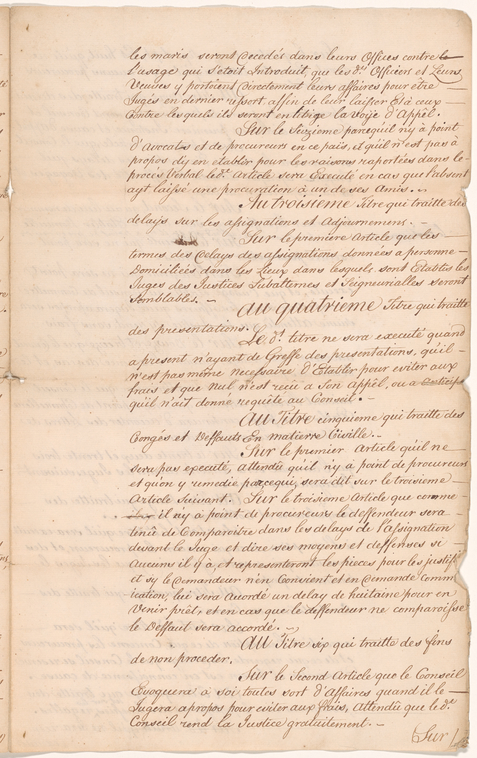 les maris seront Cecedés dans leurs Offices contre le
l'usage qui s'etait Introduit, que les d.ts Officiers et Leurs
Veuves y portoient Directement leurs affaires pour être
Jugés en dernier ressort affin de leur laisser Et à ceux
Contre lesquels ils seront en litige la Voije d'Appel.
Sur le Seizieme parcequ'il ny à point
d'Avocats et de procureurs en ce païs, et qu'il n'est pas à
propos d'y en établir pour les raisons raportées dans le
procès Verbal led.t Article sera Executé en cas que l'absent
ayt laissé une procuration à un de ses Amis.
Au troisieme Titre qui traitte des
delays sur les assignations et Adjournemens.
Sur le premiere Article que les
termes des Delays des assignations données a personne
Domiciliées dans les Lieux dans lesquels sont Etablis les
Juges des Justices Subalternes et Seigneurialles seront
Semblables.
Au quatrieme Titre qui traitte
des presentations.
Le d.t titre ne sera executé quand
a present n'ayant de Greffe des presentations, qu'il
n'est pas même necessaire d'Etablir pour eviter aux
frais et que Nul n'est reçû a Son Appel, ou a
qu'il n'ait donné requête au Conseil.
Au Titre cinquiome qui traitte des
Congés et Deffauts En matierre Civille.
Sur le premier Article qu'il ne
sera pas executé, attendu qu'il ny à point de procureurs
et qu'on y remedie parcequi, sera dit sur le troisieme
Article Suivant. Sur le troisieme Article que comme
il n'y à point de procureurs le deffendeur sera
tenû de Comparoitre dans les delays de l'assignation
devant le Juge et dire ses moyens et deffenses si
Aucuns il y à, et representeront les pieces pour les justifié
et sy le Demandeur n'en Convient et en Demande Comm
=ication, lui sera Acordé un delay de huitaine pour en
Venir prêt, et en cas que le deffendeur ne comparoisse
le Deffaut sera accordé.
Au Titre six qui traitte des fins
de non proceder.
Sur le Second Article que le Conseil
Evoquera à soi toutes sort d'affaires quand il le
Jugera a propos pour eviter aux frais, Attendu que le d.t
Conseil rend la Justice gratuitement.
Sur